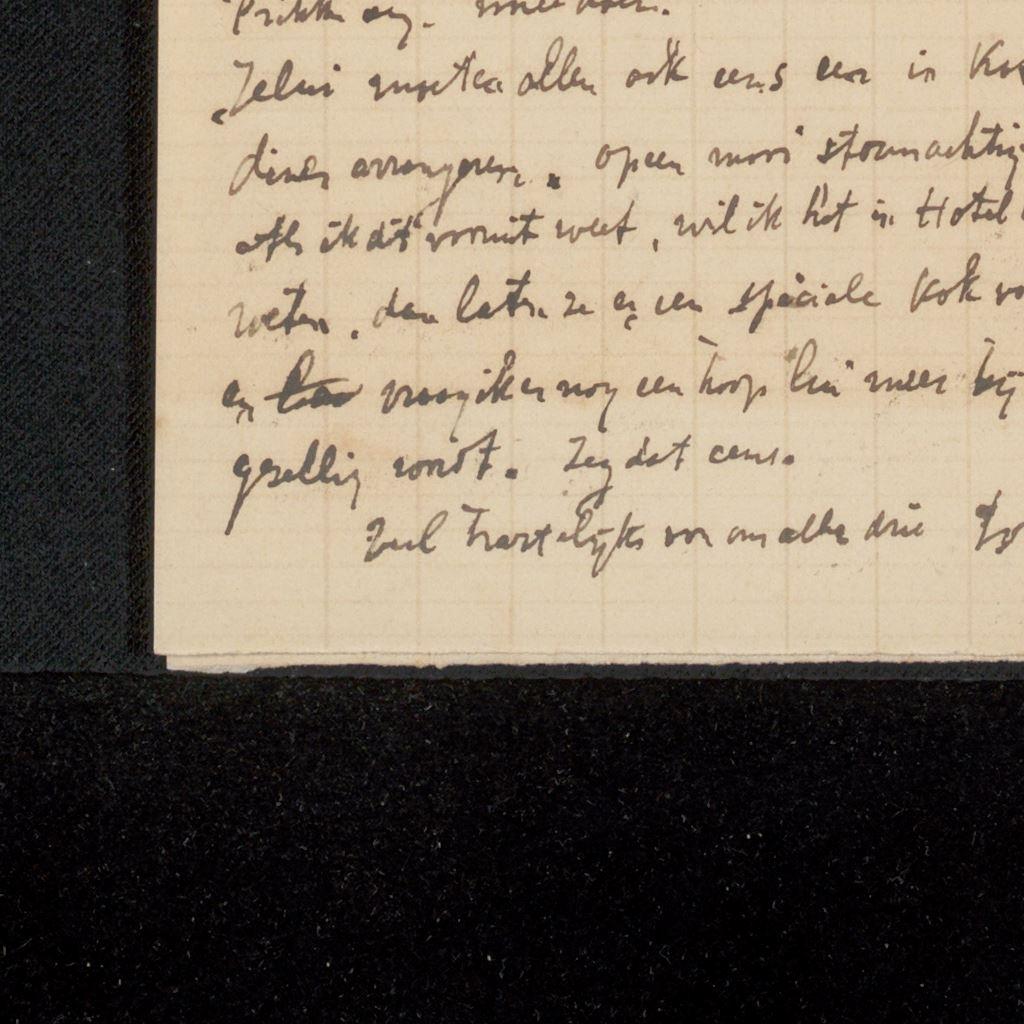 Jelui moeten allen ook eens een in
diner arrangeeren. op een mooi stormachtig
Als ik dit vooruit weet, wil ik het in Hotel
weten. dan laten ze er een speciale kok
en vraag ik er nog een hoop lui meer bij
gezellig wordt. Zeg dat eens.
Veel hartelijks van ons alle drie